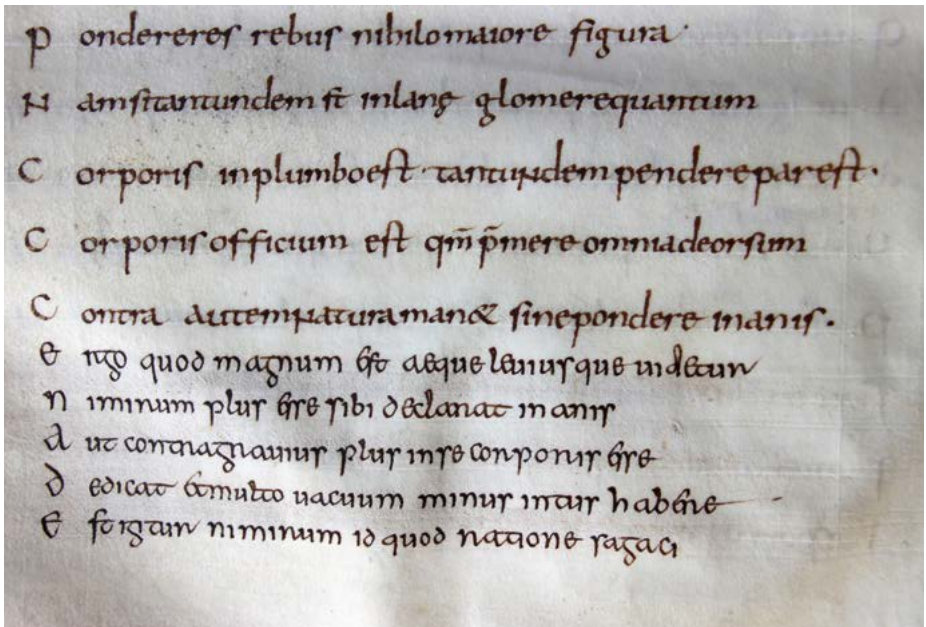 P ondereres rebus nihilomaiore figura·
N amsitantundem st inlanę glomerequantum
C orporis inplumboest· tantundempendereparest·
C orporisofficium est qm̄ p̄mere omniadeorsum
C ontra autemnaturaman& sinepondere inanis·
E rgo quod magnum est aeque leuiusque uidetur
N imirum plus esse sibi declarat inanis
A ut contragrauius plus inse corporis esse
D edicat etmulto uacuum minus intus habere
E stigitur nimirum id quod ratione sagaci